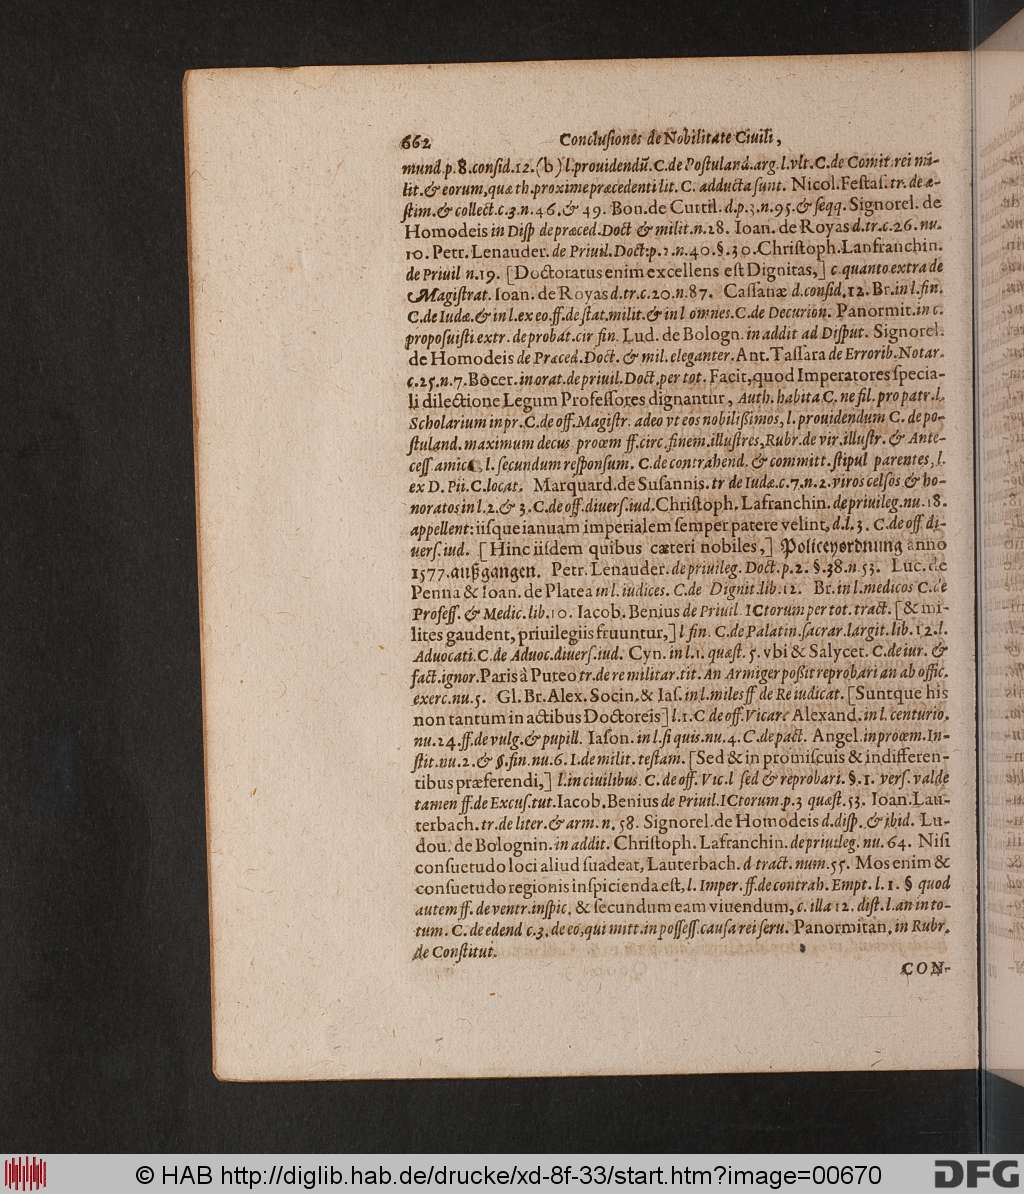 662 Conclusiones de Nobilitate Ciuili,
mund.p.8.consid.12.(b) l.prouidendū.C.de Postuland.arg.l.vlt.C.de Comit.rei mi-
lit.& eorum,quæ th.proxime præcedenti lit. C. adducta sunt. Nicol.Festas.tr.de æ-
stim.& collect.c.3.n.46.& 49. Bon.de Curtil.d.p.3.n.95.& seqq.Signorel. de
Homodeis in Disp de præced.Doct & milit.n.28. Ioan. de Royas d.tr.c.26.nu.
10. Petr. Lenauder. de Priuil.Doct:p.2.n.40.§.30.Christoph.Lanfranchin.
de Priuil n.19. [Doctoratus enim excellens est Dignitas,] c.quanto extra de
Magistrat. Ioan. de Royas d.tr.c.20.n.87. Cassanæ d.consid.12. Br.in l.fin.
C.de Iudæ.& in l.ex eo.ff.de stat.milit.& in l omnes.C.de Decurion. Panormit.in c.
proposuisti extr. de probat.cir fin. Lud. de Bologn.in addit ad Disput. Signorel.
de Homodeis de Præced.Doct. & mil.eleganter. Ant. Tassara de Errorib.Notar.
c.25.n.7.Bocer.in orat.de priuil.Doct.per tot. Facit,quod Imperatores specia-
li dilectione Legum Professores dignantur, Auth. habita C. ne fil. pro patr.l.
Scholarium in pr.C.de off.Magistr. adeo vt eos nobilißimos, l. prouidendum C. de po-
stuland.maximum decus proœm ff.circ.finem.illustres,Rubr.de vir.illustr. & Ante-
cess amicꝰ, l. secundum responsum. C.de contrahend. & committ.stipul parentes, l.
ex D. Pii.C.locat. Marquard.de Susannis.tr de Iudæ.c.7.n.2.viros celsos & ho-
noratos in l.2.& 3.C.de off.diuers.iud.Christoph. Lafranchin.de priuileg.nu.18.
appellent: iisque ianuam imperialem semper patere velint, d.l.3. C.de off.di-
uers.iud. [Hinc iisdem quibus cæteri nobiles,] Policeyordnung anno
1577.außgangen. Petr. Lenauder.de priuileg. Doct.p.2. §.38.n.53. Luc.de
Penna & Ioan. de Platea in l.iudices. C.de Dignit.lib.12. Br.in l.medicos C.de
Profess. & Medic.lib.10. Iacob. Benius de Priuil ICtorum per tot. tract.[& mi-
lites gaudent, priuilegiis fruuntur,] l fin. C.de Palatin.sacrar.largit.lib.12.l.
Aduocati.C.de Aduoc.diuers.iud. Cyn. in l.1.quæst. 5. vbi & Salycet. C.de iur. &
fact.ignor.Paris à Puteo tr.de re militar.tit. An Armiger poßit reprobari an ab offic.
exerc.nu.5. Gl. Br. Alex. Socin. & Ias. in l.miles ff de Re iudicat. [Suntque his
non tantum in actibus Doctoreis] l.1.C de off.Vicar: Alexand.in l.centurio.
nu.24.ff.de vulg.& pupill. Iason. in l.si quis.nu.4. C.de pact. Angel.in proœm.In-
stit.nu.2.& §.fin.nu.6.I.de milit. testam. [Sed & in promiscuis & indifferen-
tibus præferendi,] l.in ciuilibus. C.de off. Vic.l sed & reprobari. §.1. vers. valde
tamen ff.de Excus.tut.Iacob. Benius de Priuil.ICtorum.p.3 quæst.53. Ioan. Lau-
terbach. tr.de liter.& arm.n. 58. Signorel.de Homodeis d.disp.& ibid. Lu-
dou. de Bolognin. in addit. Christoph. Lafranchin. de priuileg.nu.64. Nisi
consuetudo loci aliud suadeat, Lauterbach. d tract. num.55. Mos enim &
consuetudo regionis inspicienda est, l. Imper. ff.de contrah. Empt. l.1. § quod
autem ff. de ventr.inspic. & secundum eam viuendum, c. illa 12. dist.l.an in to-
tum. C. de edend c.3.de eo,qui mitt.in possess.causa rei seru. Panormitan. in Rubr.
de Constitut.
CON-
© HAB http://diglib.hab.de/drucke/xd-8f-33/start.htm?image=00670 DFG